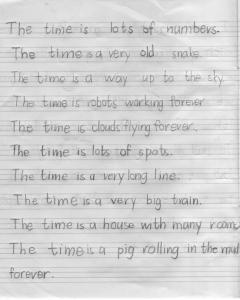 The time is lots of numbers.
The time is a very old snake.
The time is a way up to the sky.
The time is robots working forever
The time is clouds flying forever.
The time is lots of spots.
The time is a very long line.
The time is a very big train.
The time is a house with many room
The time is a pig rolling in the mud
forever.